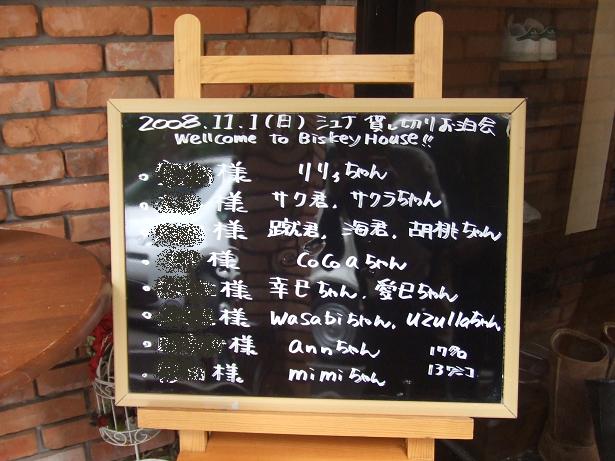 2008.11.1(日) シュナ 貸し切りお泊会
Wellcome to Biskey House!!
様 リリィちゃん
様 サク君、サクラちゃん
様 蹴君、海君、胡桃ちゃん
様 CoCoaちゃん
様 幸巴ちゃん、愛巴ちゃん
様 Wasabiちゃん、Uzullaちゃん
様 annちゃん
様 mimiちゃん